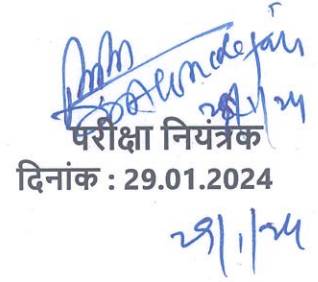 29/1/24
परीक्षा नियंत्रक
दिनांक : 29.01.2024
29/1/24